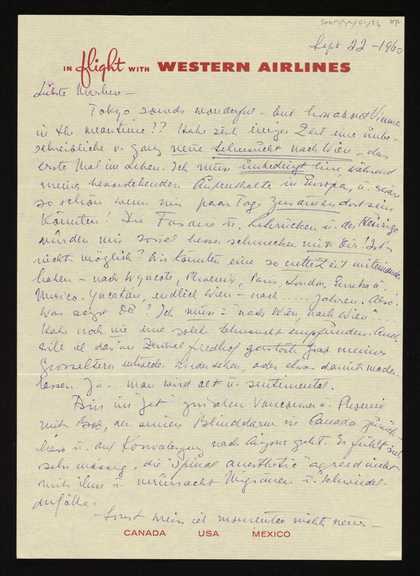 Sept 22 - 1960
IN flight WITH WESTERN AIRLINES
Liebste
Tokyo sounds wonderful - but how about Vienna
in the meantime?? Hab seit einiger Zeit eine unbe-
schreibliche u. ganz neue Sehnsucht nach Wien - das
erste Mal im Leben. Ich muss unbedingt hin während
meines bevorstehenden Aufenthalts in Europa, u. wäre
so schön wenn wir paar Tage zusammen dort sein
könnten! Die Fasane u. u. der Heurige
würden mir soviel besser schmecken mit Dir! Ist's
nicht möglich? Wir könnten eine so nette Zeit miteinander
haben - nach Phoenix, Paris, London,
Mexico - Yucatan, endlich Wien - nach ... Jahren. Also:
was sagst Du? Ich muss nach Wien, nach Wien
Hab noch nie eine solche Sehnsucht empfunden. Und
will ich das am Zentral friedhof Grab meiner
Grosseltern wieder oder etwas damit machen
lassen. Ja - man wird alt u. sentimental.
Bin im "Jet" zwischen Vancouver u. Phoenix
mit Bob, der seinen Blinddarm in Canada zurück-
liess u. auf Konvaleszenz nach Arizona geht. Er fühlt sich
sehr mässig, die "Spinal anesthetic" agreed nicht
mit ihm u. verursacht Migraines u. Schwindel-
anfälle.
- Sonst weiss ich momentan nichts neues -
CANADA USA MEXICO